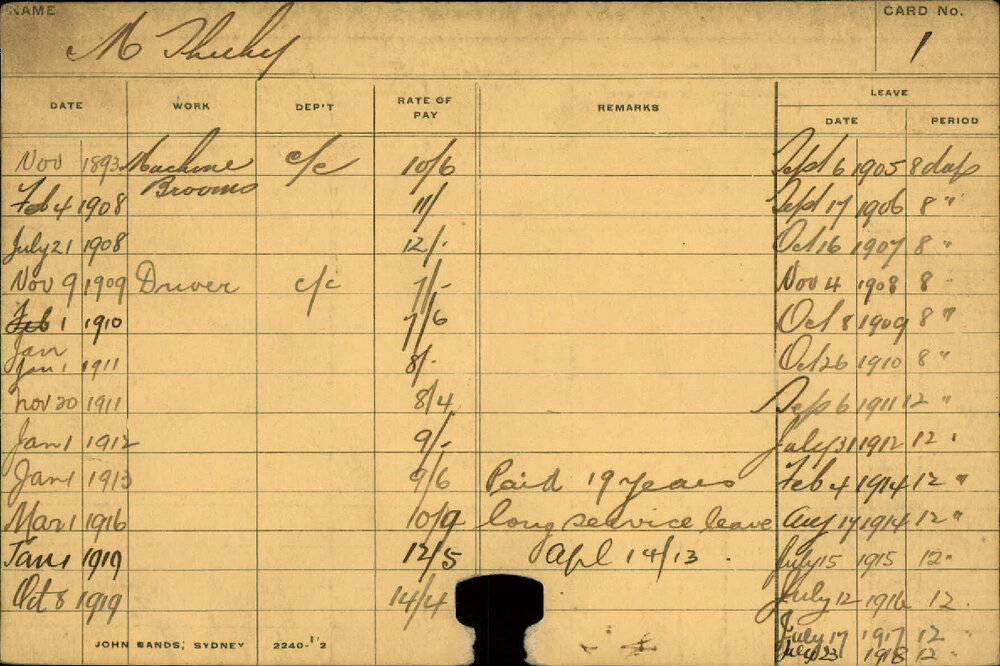 NAME CARD No.
M Sheehy 1
LEAVE
DATE WORK DEP'T RATE OF PAY REMARKS DATE PERIOD
Nov 1893 Machine Brooms c/c 10/6 Sept 6 1905 8 days
Feb 4 1908 11/ Sept 17 1906 8 "
July 21 1908 12/- Oct 16 1907 8 "
Nov 9 1909 Driver c/c 7/- Nov 4 1908 8
Feb 1 1910 7/6 Oct 8 1909 8 "
Jan
Jan 1 1911 8/- Oct 26 1910 8 "
Nov 20 1911 8/4 Sep 6 1911 12 "
Jan 1 1912 9/- July 31 1912 12 "
Jan 1 1913 9/6 Paid 19 years Feb 4 1914 12 "
Mar 1 1916 10/9 long service leave Aug 17 1914 12 "
Jan 1 1919 12/5 Apl 14/13. July 15 1915 12 "
Oct 8 1919 14/4 July 12 1916 12.
July 17 1917 12 "
JOHN SANDS, SYDNEY 2240-11'2 July 23 1918 12 "